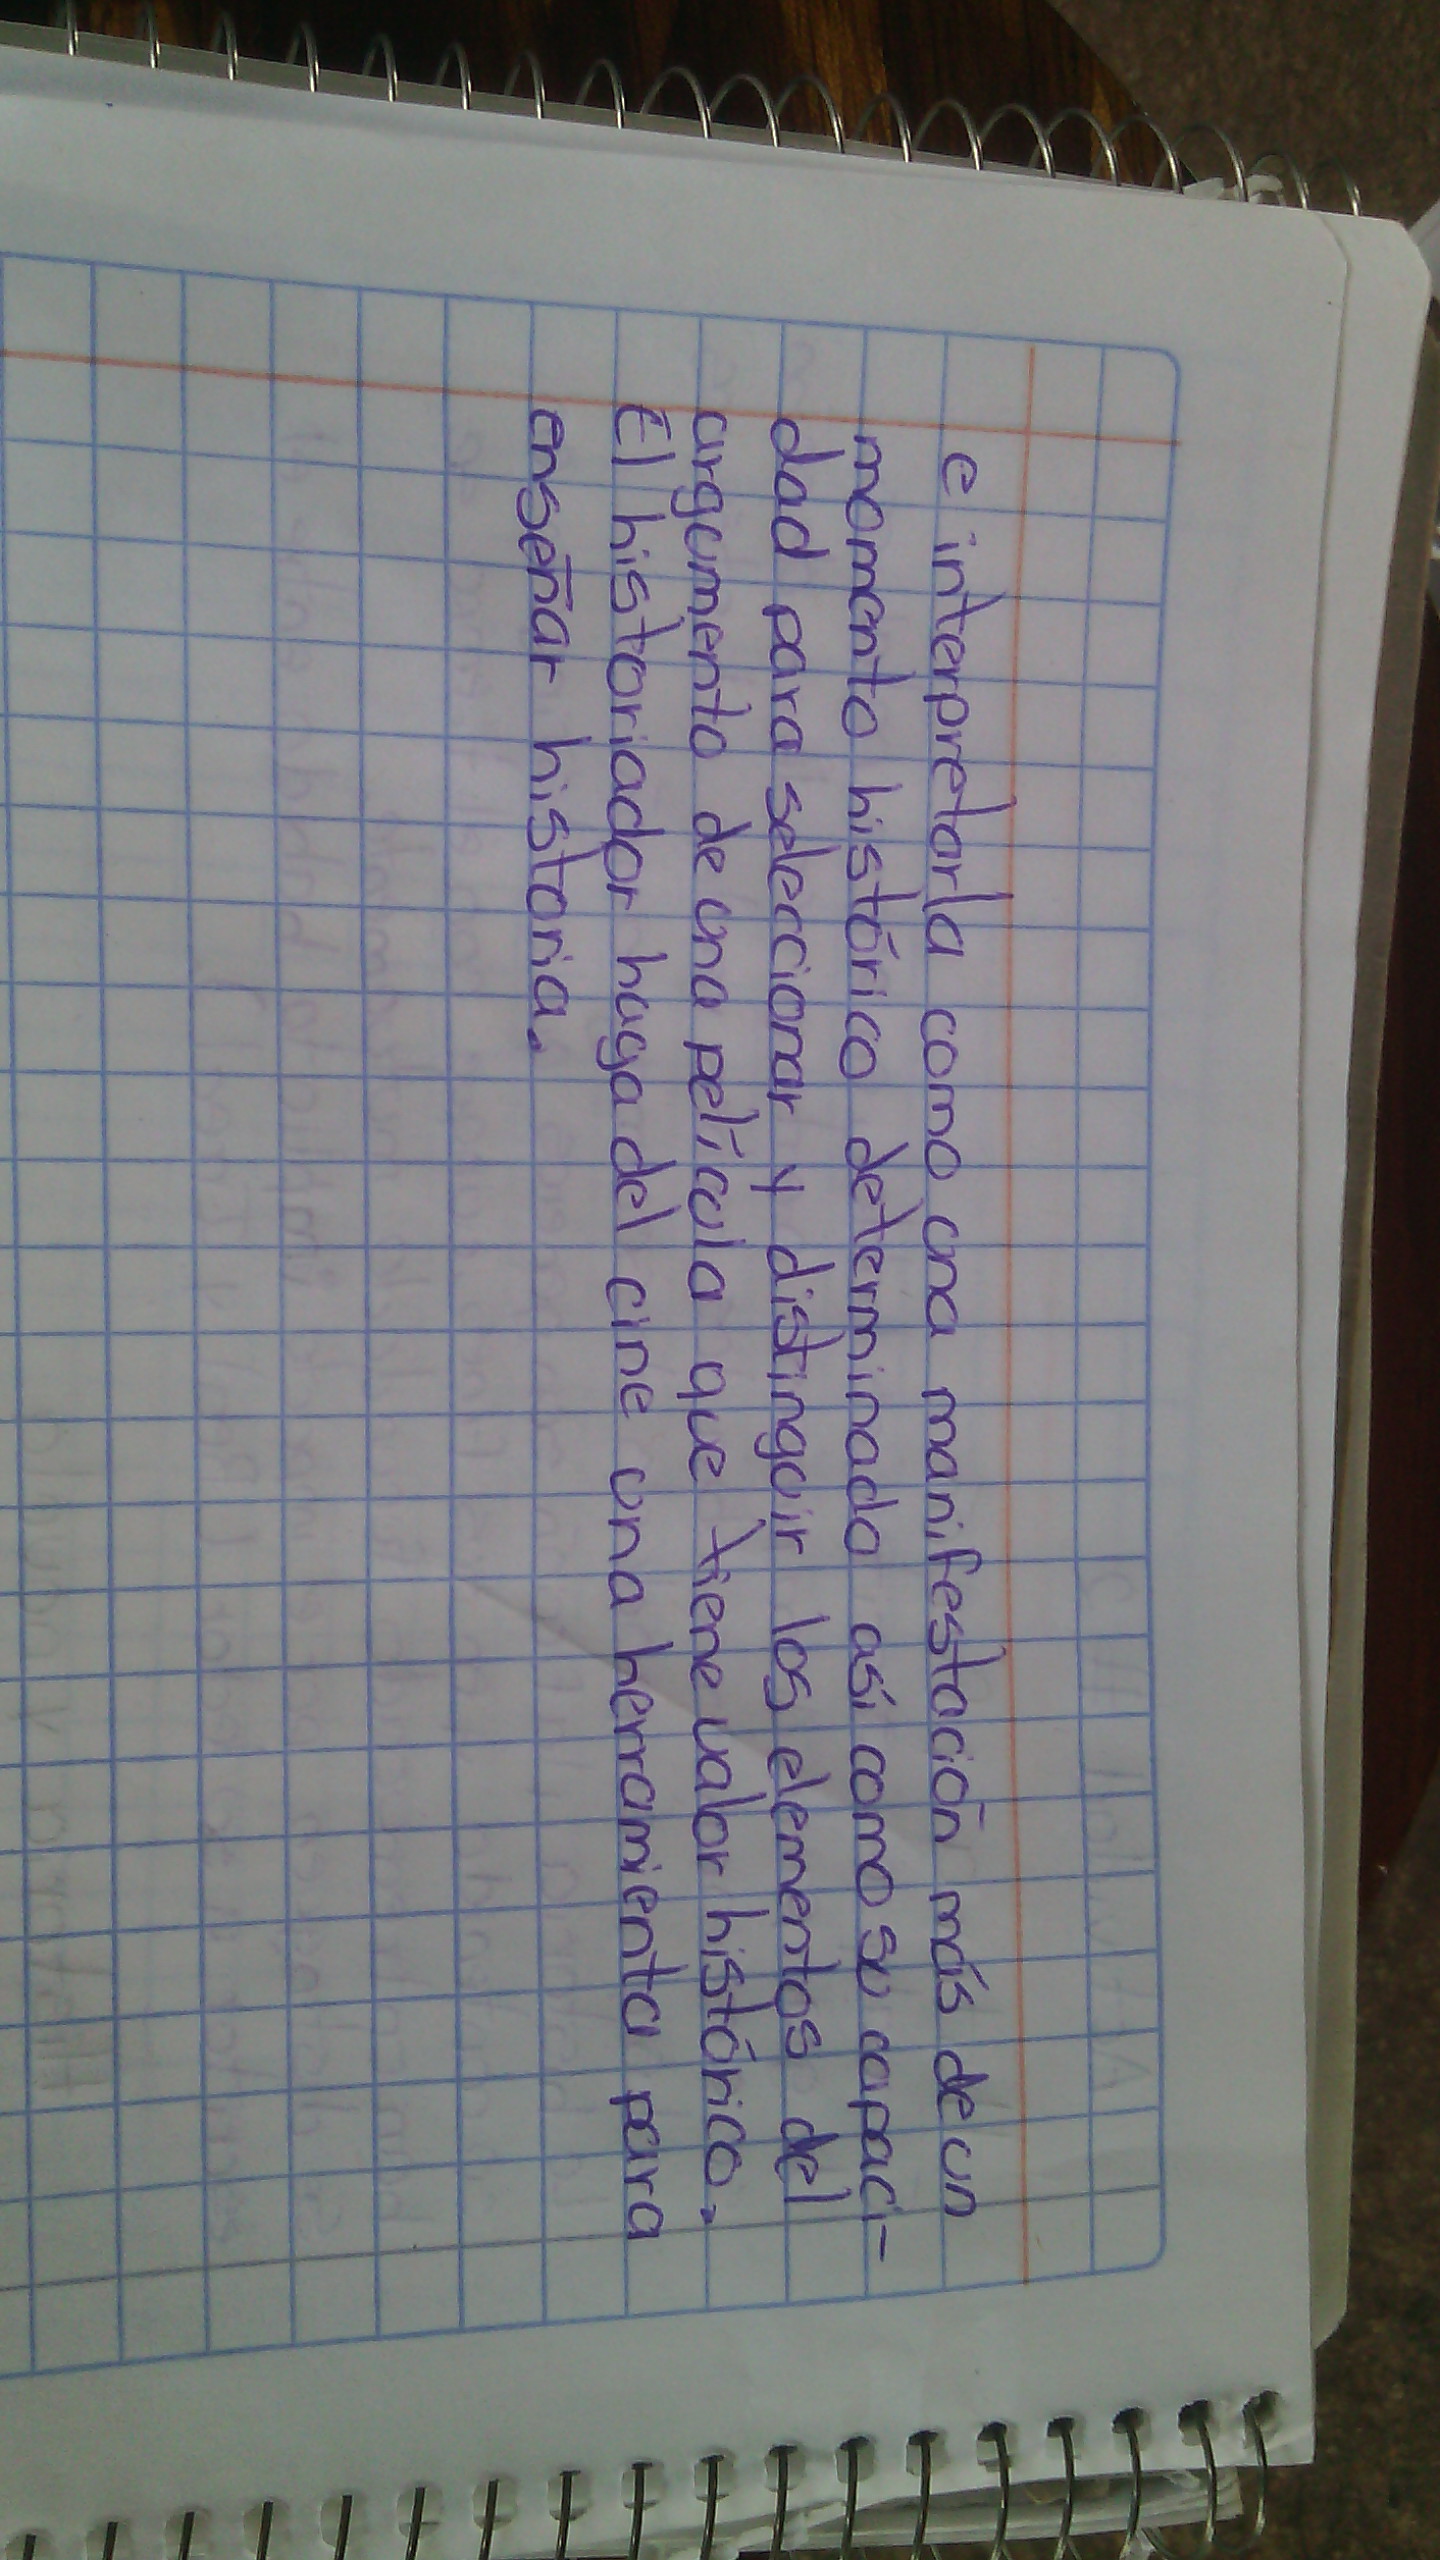 e interpretarla como una manifestación más de un
momento histórico determinado así como su capaci-
dad para seleccionar y distinguir los elementos del
argumento de una película que tiene valor histórico.
El historiador haga del cine una herramienta para
enseñar historia.